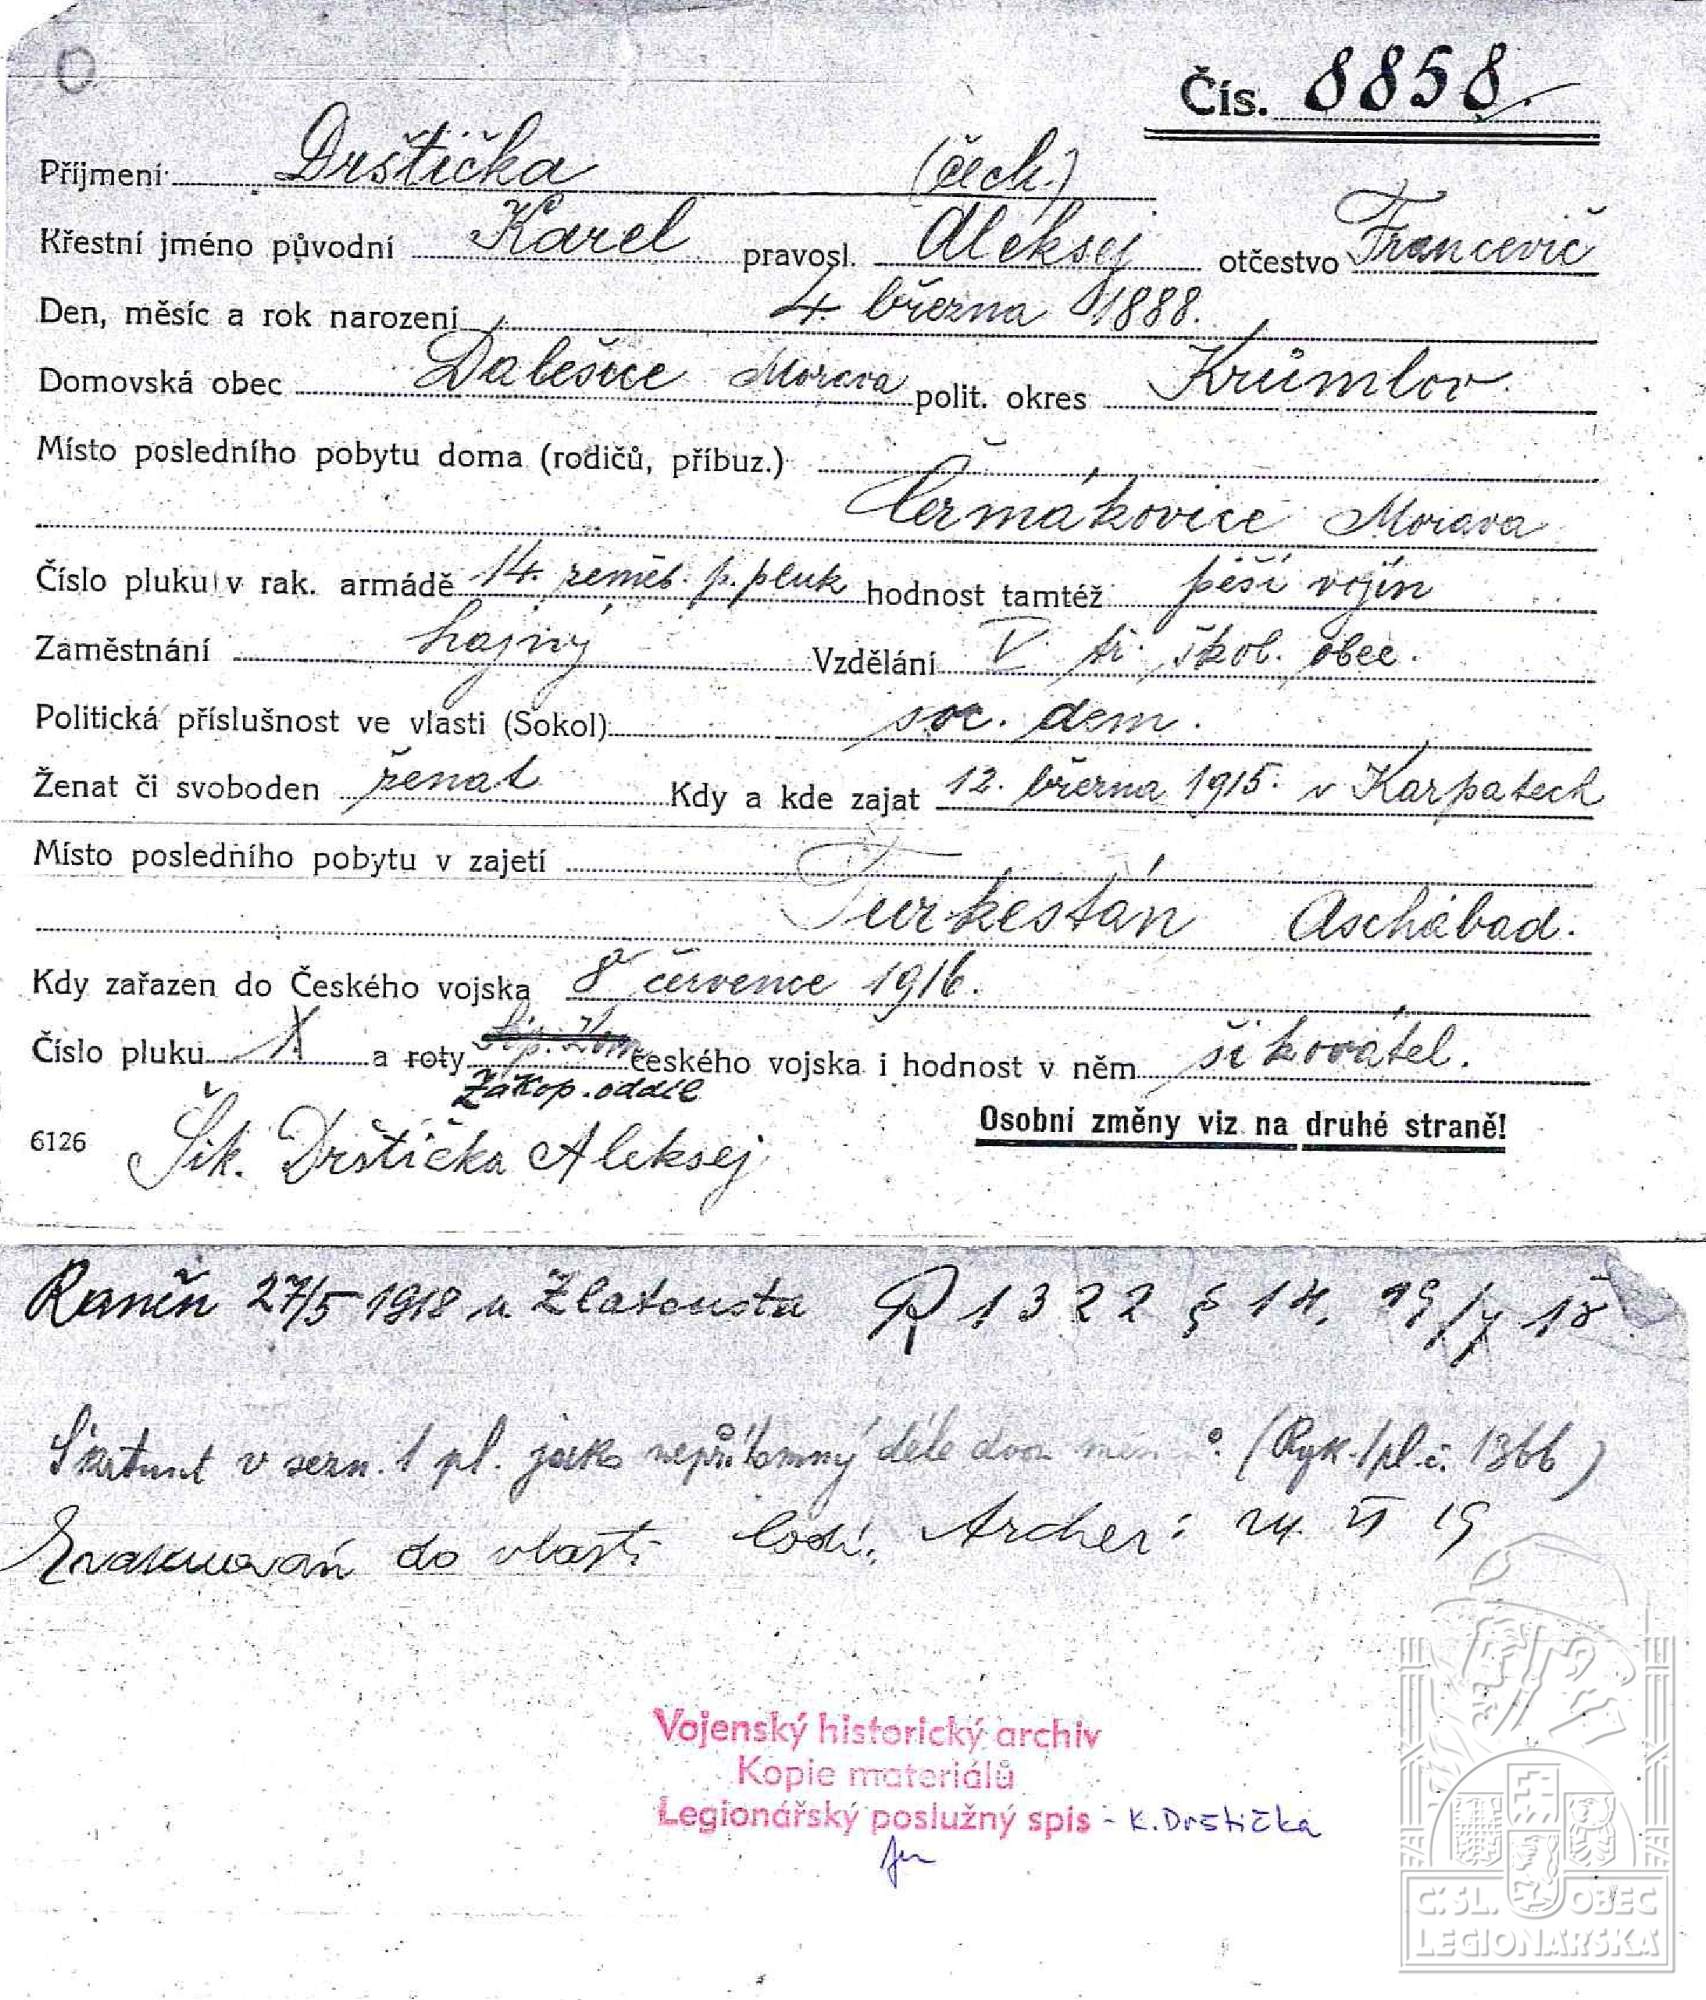 Čís. 8858.
Příjmení Drštička (čech.)
Křestní jméno původní Karel pravosl. Aleksej otčestvo Francevič
Den, měsíc a rok narození 4. března 1888.
Domovská obec Dalešice Morava polit. okres Krŭmlov.
Místo posledního pobytu doma (rodičů, příbuz.)
Čermákovice Morava
Číslo pluku v rak. armádě 14. zeměb. p. pluk hodnost tamtéž pěší vojín
Zaměstnání hajný Vzdělání V. tř. škol. obec.
Politická příslušnost ve vlasti (Sokol) soc. dem.
Ženat či svoboden ženat Kdy a kde zajat 12. března 1915. v Karpatech
Místo posledního pobytu v zajetí
Turkestán Aschabad.
Kdy zařazen do Českého vojska 8 července 1916.
Číslo pluku X a roty českého vojska i hodnost v něm šikovatel.
Zákop. oddíl
6126 Šik. Drštička Aleksej
Osobní změny viz na druhé straně!
Raněn 27/5 1918 u Zlatousta R 1322 § 14. 19/7 18
Škrtnut v sezn. 1 pl. jako nepřítomný déle dvou (Rzk. 1 pl. č. 1366)
Evakuován do vlasti lodí: Archer: 24. VI 19
Vojenský historický archiv
Kopie materiálů
Legionářský poslužný spis - K. Drštička
Č.SL. OBEC
LEGIONÁŘSKÁ